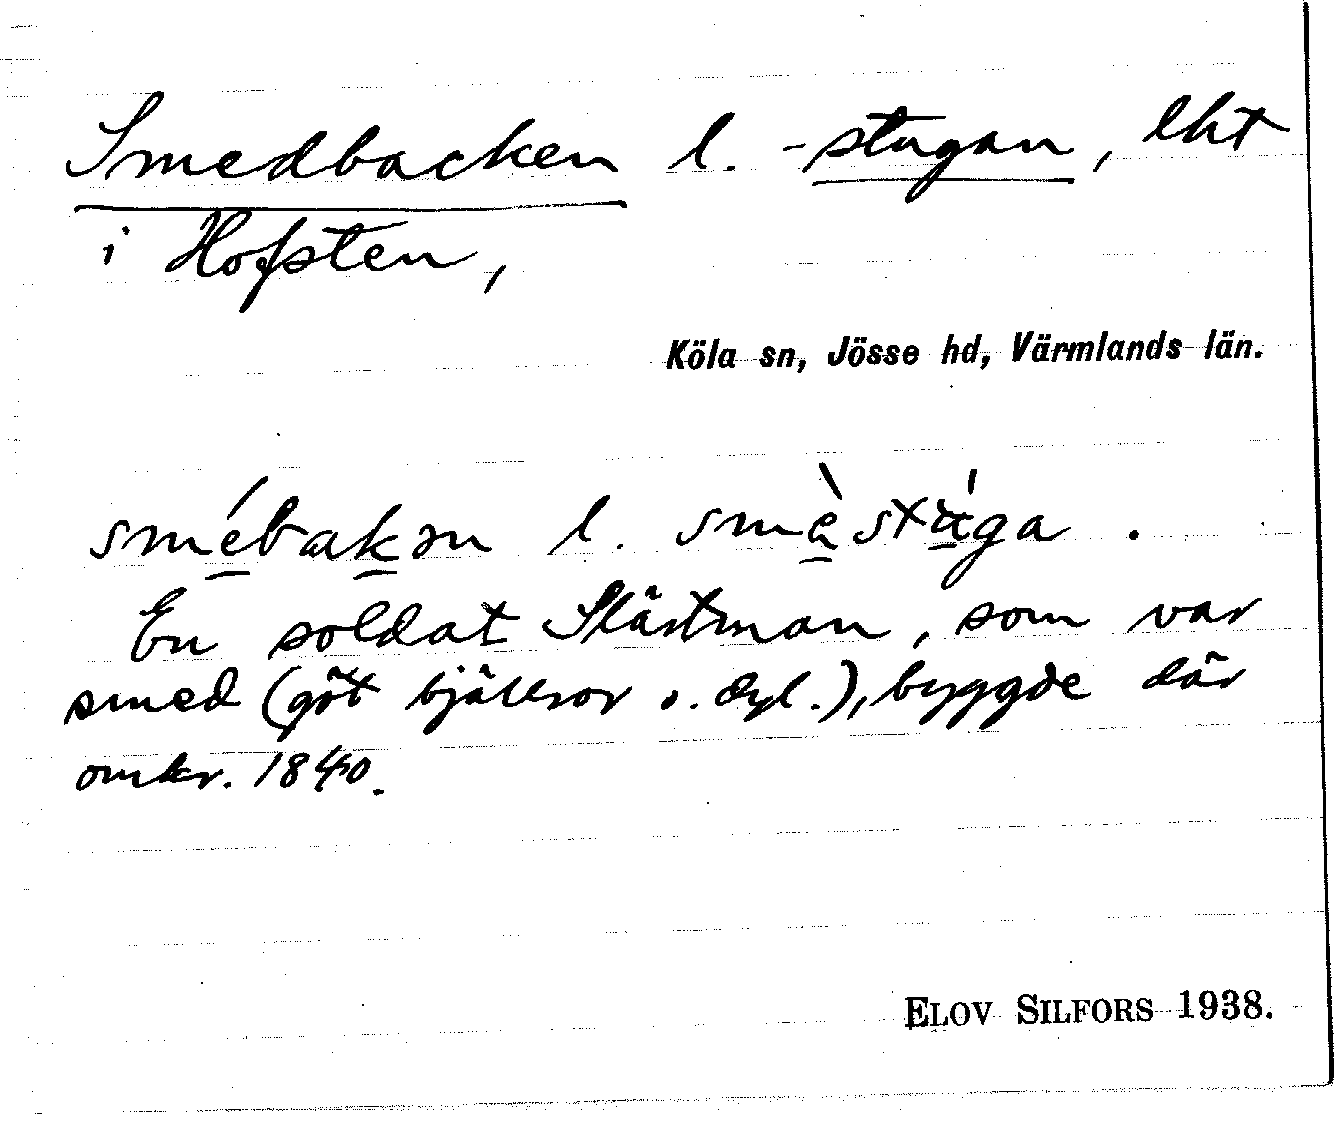 Smedbacken l. -stugan, lht
i Hofsten,
Köla sn, Jösse hd, Värmlands län.
smébakən l. smèstùga.
En soldat Slästman, som var
smed (göt bjällror o. dyl.), byggde där
omkr. 1840.
ELOV SILFORS 1938.